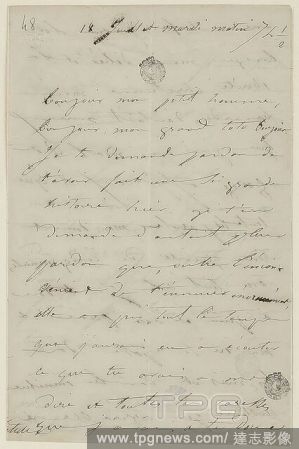 48
18 juillet mardi matin 7h ½
Bonjour mon petit homme,
bonjour mon grand toto bonjour
Je te demande pardon de
t'avoir fait une si grande
histoire hier je t'en
demande d'autant plus
pardon que, outre l'incon
de t'ennuyer
elle a pris tout le temps
que j'aurais eu à écouter
ce que tu avais à me
dire et toutes les
que
TPG
www.tpgnews.com/達志影像